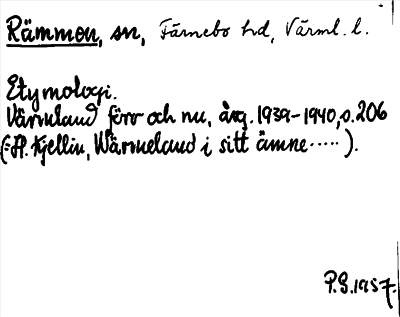 Rämmen, sn, Färnebo hd, Värml. l.
Etymologi.
Värmland förr och nu, årg. 1939-1940, s. 206
(=H. Kjellin, Wärmeland i sitt ämne.....).
P.G. 1957.